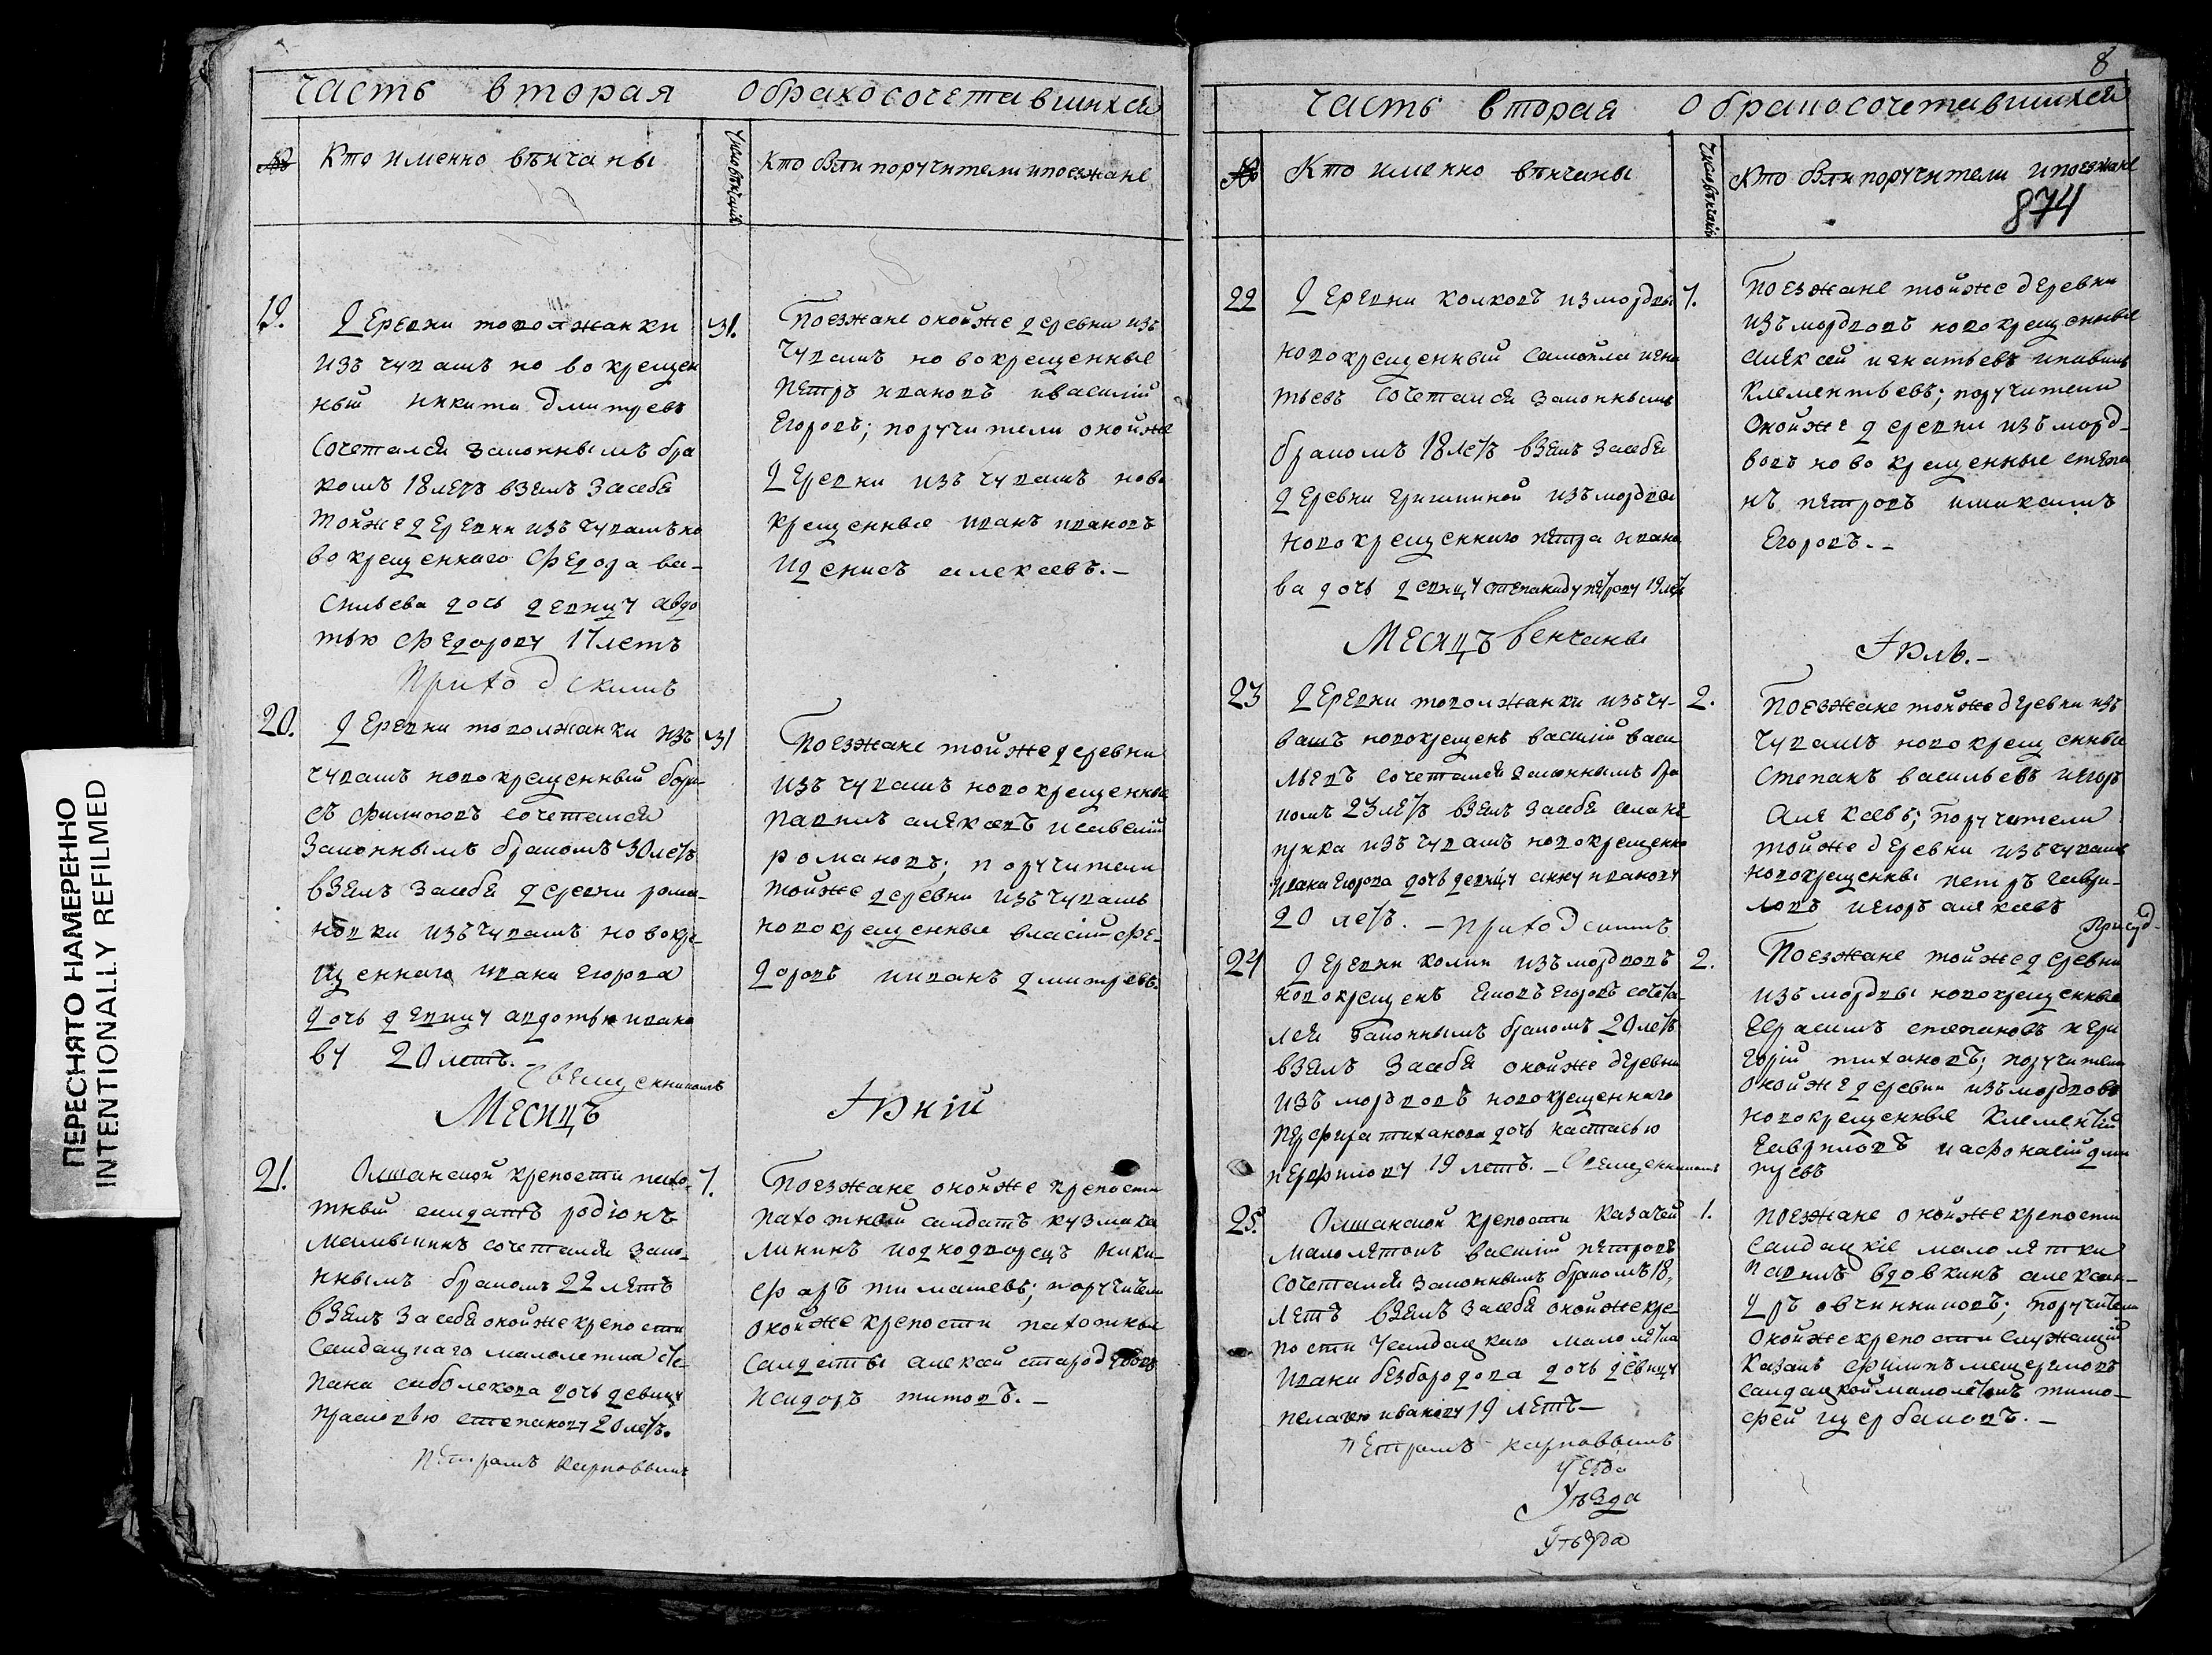 ПЕРЕСНЯТО НАМЕРЕННО
INTENTIONALLY REFILMED
часть вторая обракосочетавшихся
№ Кто именно вѣнчаны
Кто были поручители ипоезжане
19.
Деревни топожанки
изъ чувашъ но во крещен
ный никита дмитревъ
сочетался законнымъ бра
комъ 18 летъ взялъ засебя
тойже деревни изъ чувашъ но
во крещеннаго Федора ва-
сильева дочь девицу авдо
тью федорову 17 летъ
31.
Поезжане онойже деревни изъ
чувашъ но вокрещенные
петръ ивановъ ивасилій
Егоровъ; поручители онойже
деревни изъ чувашъ ново
крещенные иванъ ивановъ
иденисъ алексеевъ.-
20.
Деревни изъ
чувашъ новокрещенный бори
съ филиповъ сочетался
законнымъ бракомъ 30 летъ
взялъ засебя деревни рома-
новки изъ чувашъ новокре
щеннаго ивана егорова
дочь девицу авдотью ивано
ву 20 летъ.
Священникомъ
31
Поезжане тойже деревни
изъ чувашъ новокрещенные
павилъ алексеевъ исавелій
романовъ; поручители
тойже деревни изъ чувашъ
новокрещенные власій фе-
доровъ ииванъ дмитревъ.
Месяцъ Іюній
21.
крепости пехо-
тный салдатъ родіонъ
сочетался зако-
ннымъ бракомъ 22 летъ
взялъ засебя онойже крепости
салдацкаго малолетка сте
пана дочь девицу
прасковью степанову 20 летъ.
петромъ карповымъ
7.
Поезжане онойже крепости
пехотный салдатъ кузма ка
лининъ иоднодворецъ ники-
форъ тимашевъ; поручители
онойже крепости пехотныя
салдаты алексей
исидоръ титовъ.-
8
часть вторая обракосочетавшихся
№ Кто именно вѣнчаны
Кто были поручители ипоезжане
874
22
Деревни изъ мордвы
новокрещенный самойла игна
тьевъ сочетался законнымъ
бракомъ 18 летъ взялъ засебя
деревни гришкиной изъ мордвы
новокрещеннаго петра ивано
ва дочь девицу степаниду петрову 19 летъ
7.
Поезжане тойже деревни
изъ мордвовъ новокрещенные
алексей игнатьевъ ипавилъ
клементьевъ; поручители
онойже деревни изъ морд-
вовъ ново крещенные степа
нъ петровъ имаксимъ
Егоровъ.-
Месяцъ венчаны Іюль.-
23
Деревни изъ чу-
вашъ новокрещенъ василій васи
льевъ сочетался законнымъ бра
комъ 23 летъ взялъ засебя
изъ чувашъ новокрещенна
ивана егорова дочь девицу анну иванову
20 летъ.
2.
Поезжане тойже деревни изъ
чувашъ новокрещенныя
степанъ васильевъ иегоръ
алексеевъ; поручители
тойже деревни изъ чувашъ
новокрещенны петръ гаври-
ловъ иегоръ алексеевъ
24
Деревни изъ мордвовъ
новокрещенъ егоровъ сочета
лся законнымъ бракомъ 20 летъ
взялъ засебя онойже деревни
изъ мордвовъ новокрещеннаго
перфила тиханова дочь настасью
перфилову 19 летъ.- Священникомъ
2.
Поезжане тойже деревни
изъ мордвы новокрещенные
герасимъ степановъ игри
горій тихановъ; поручители
онойже деревни изъ мордвовъ
новокрещенные клементій
гавриловъ иафонасій дми
тревъ
25.
крепости казачей
малолетокъ василій петровъ
сочетался законнымъ бракомъ 18
летъ взялъ засебя онойже кре
пости усалдацкаго малолетка
ивана безбородова дочь девицу
пелагею иванову 19 летъ-
петромъ карповымъ
1.
Поезжане онойже крепости
салдацкіе малолетки
павилъ вдовкинъ алексан-
дръ овчинниковъ; поручители
онойже крепости служащій
казакъ филипъ мещеряковъ
салдацкой малолетокъ тимо-
фей щербаковъ.-
Уезда
Уѣзда
Уѣзда